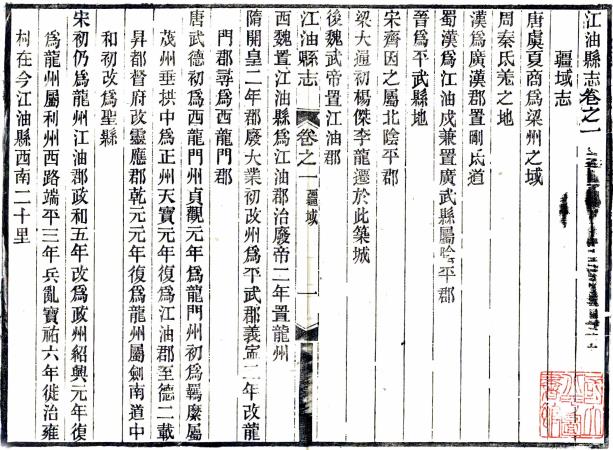 江油縣志卷之一
疆域志
唐虞夏商爲梁州之域
周秦氐羌之地
漢爲廣漢郡置剛氐道
蜀漢爲江油戍兼置廣武縣屬陰平郡
晉爲平武縣地
宋齊因之屬北陰平郡
梁大通初楊傑李龍遷於此築城
後魏武帝置江油郡
江油縣志
卷之一
疆域
一
西魏置江油縣爲江油郡治廢帝二年置龍州
隋開皇二年郡廢大業初改州爲平武郡義寧二年改龍
門郡尋爲西龍門郡
唐武德初爲西龍門州貞觀元年爲龍門州初爲羈縻屬
茂州垂拱中爲正州天寶元年復爲江油郡至德二載
昇都督府改靈應郡乾元元年復爲龍州屬劍南道中
和初改爲聖縣
宋初仍爲龍州江油郡政和五年改爲政州紹興元年復
爲龍州屬利州西路端平三年兵亂寶祐六年徙治雍
村在今江油縣西南二十里